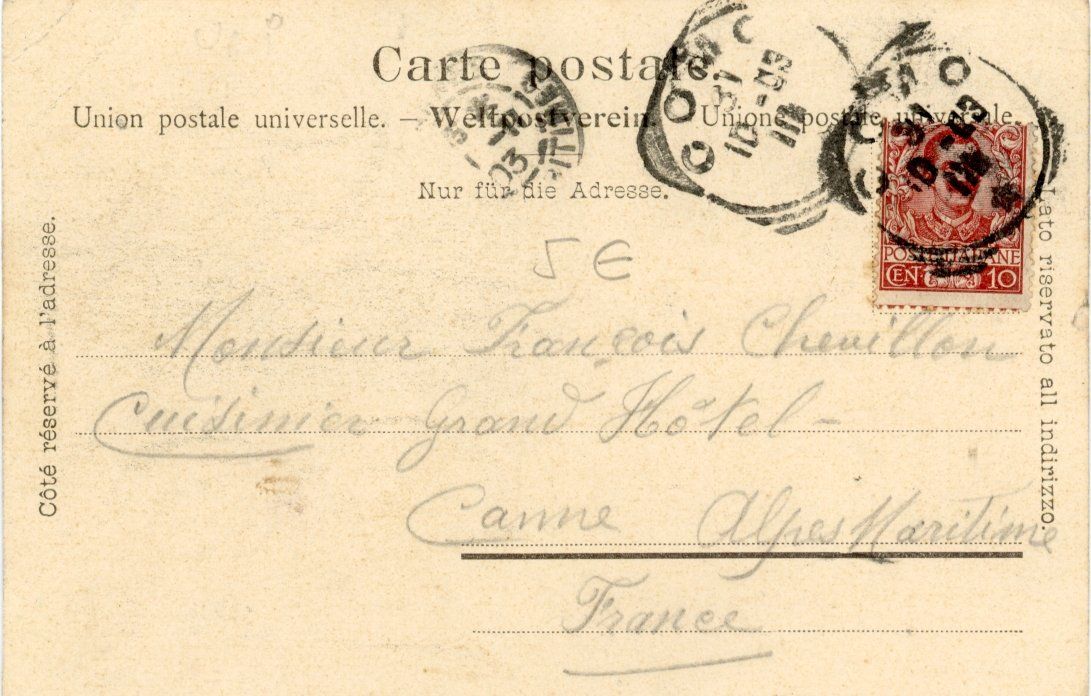 Carte postale.
Union postale universelle. — Weltpostverein. — Unione postale universale.
Nur für die Adresse.
Côté réservé à l'adresse.
Lato riservato all indirizzo.
COMO
31
10-03
COMO
31
10-03
POSTE ITALIANE
CEN. 10
5 €
Monsieur François Chevillon
Cuisinier Grand Hôtel -
Canne Alpes Maritime
France